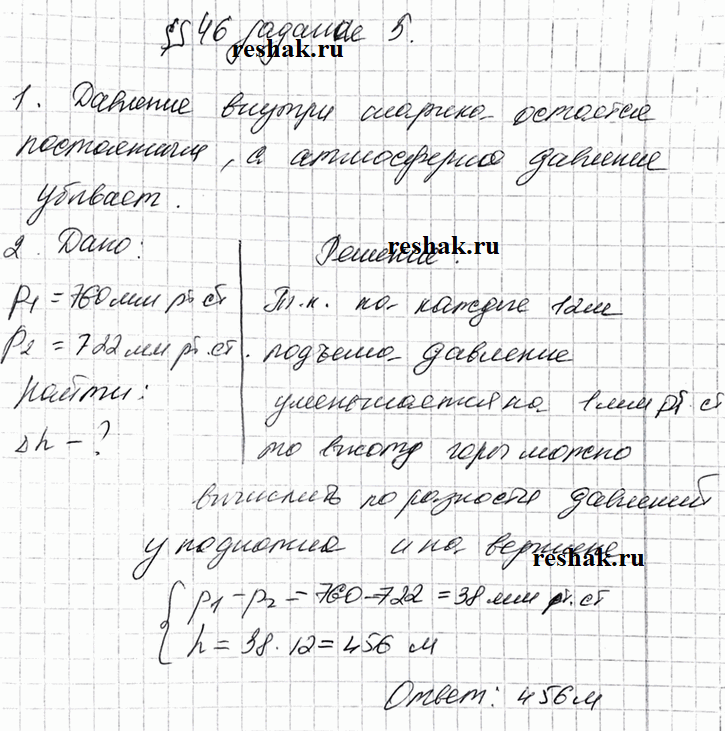 §§ 46 задание 5.
reshak.ru
1. Давление внутри шарика остается
постоянным, а атмосферно давление
убывает.
2. Дано:
Решение:
reshak.ru
p₁ = 760 мм рт ст
Т.к. на каждые 12м
p₂ = 722 мм рт. ст.
подъема давление
Найти:
уменьшается на 1 мм рт ст
Δh - ?
то высоту горы можно
вычислить по разности давлений
у подножия и на вершине
reshak.ru
p₁ - p₂ = 760 - 722 = 38 мм рт. ст
h = 38 · 12 = 456 м
Ответ: 456м